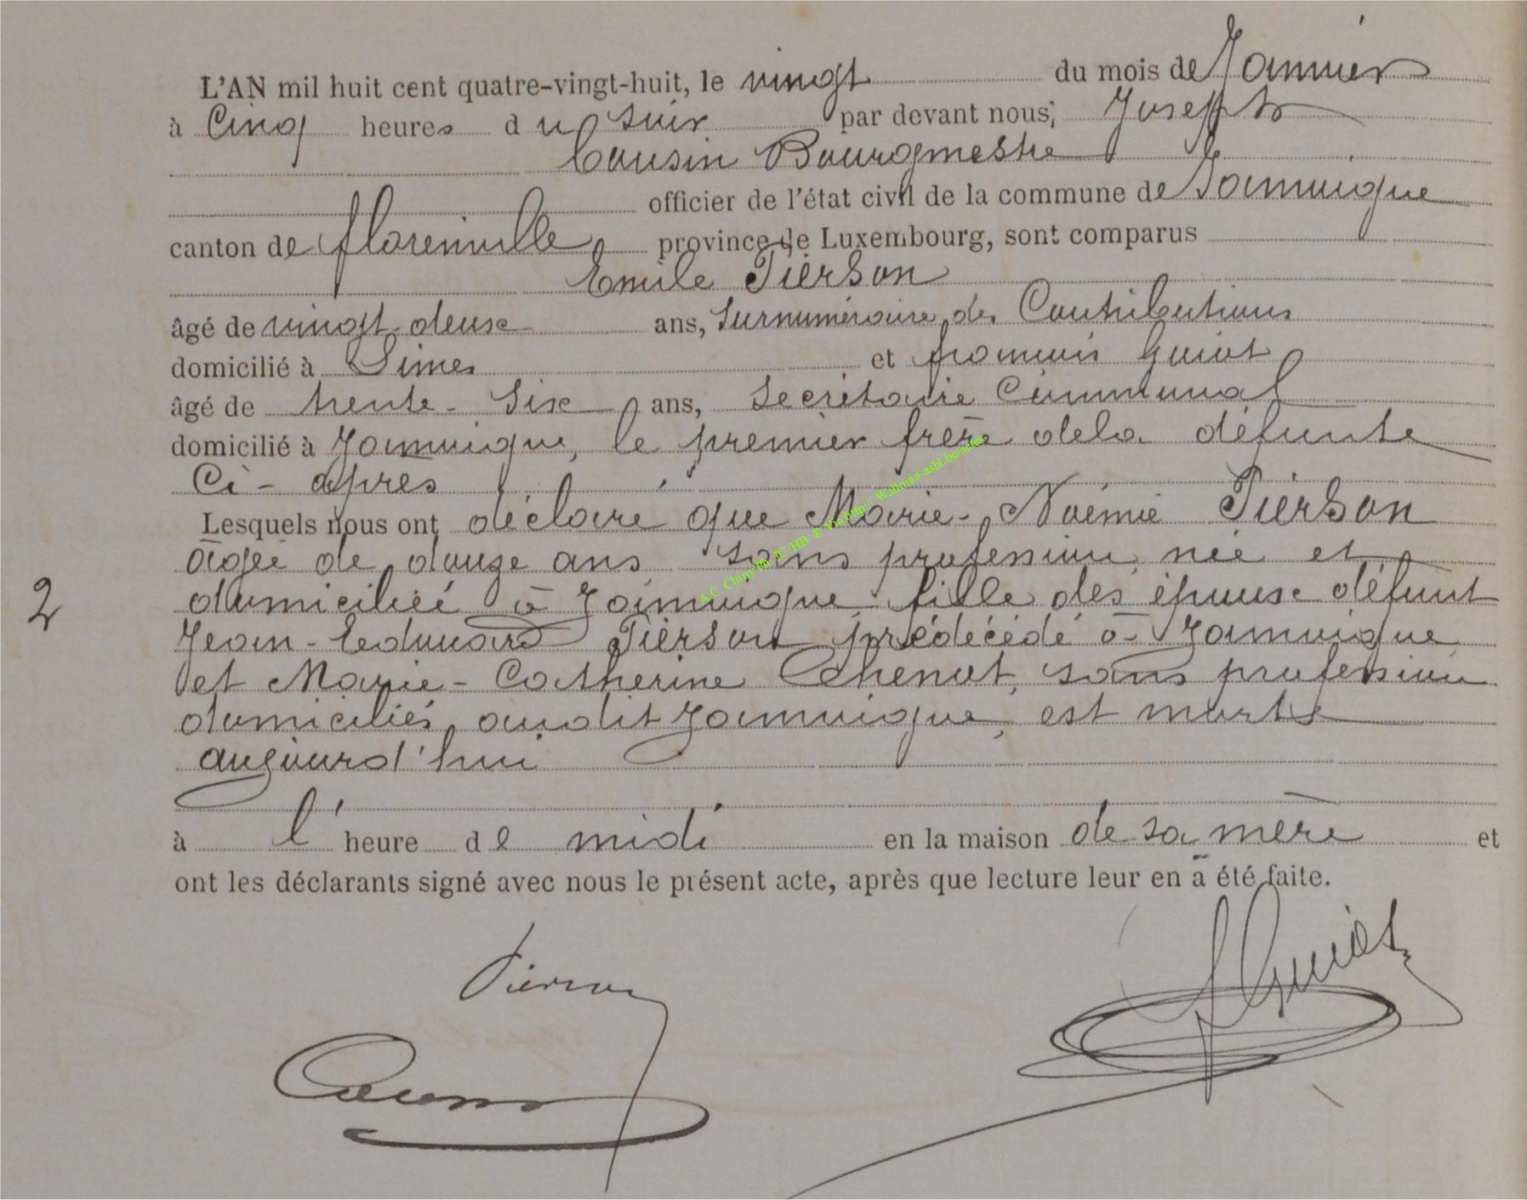 L'AN mil huit cent quatre-vingt-huit, le vingt du mois de Janvier
à Cinq heures du soir par devant nous, Joseph
Cousin Bourgmestre
officier de l'état civil de la commune de Jamoigne
canton de florenville province de Luxembourg, sont comparus
Emile Pierson
âgé de vingt-deux ans, Surnuméraire des Contributions
domicilié à et françois Guiot
âgé de trente-Six ans, Secrétaire Communal
domicilié à Jamoigne, le premier frère de la défunte
Ci-après
Lesquels nous ont déclaré que Marie-Noémie Pierson
âgée de douze ans sans profession, née et
domiciliée à Jamoigne fille des époux défunt
Jean-Edouard Pierson prédécédé à Jamoigne
et Marie-Catherine sans profession
domiciliés audit Jamoigne, est morte
aujourd'hui
2
à l' heure de midi en la maison de sa mère et
ont les déclarants signé avec nous le présent acte, après que lecture leur en a été faite.
Pierson
F Guiot
Cousin